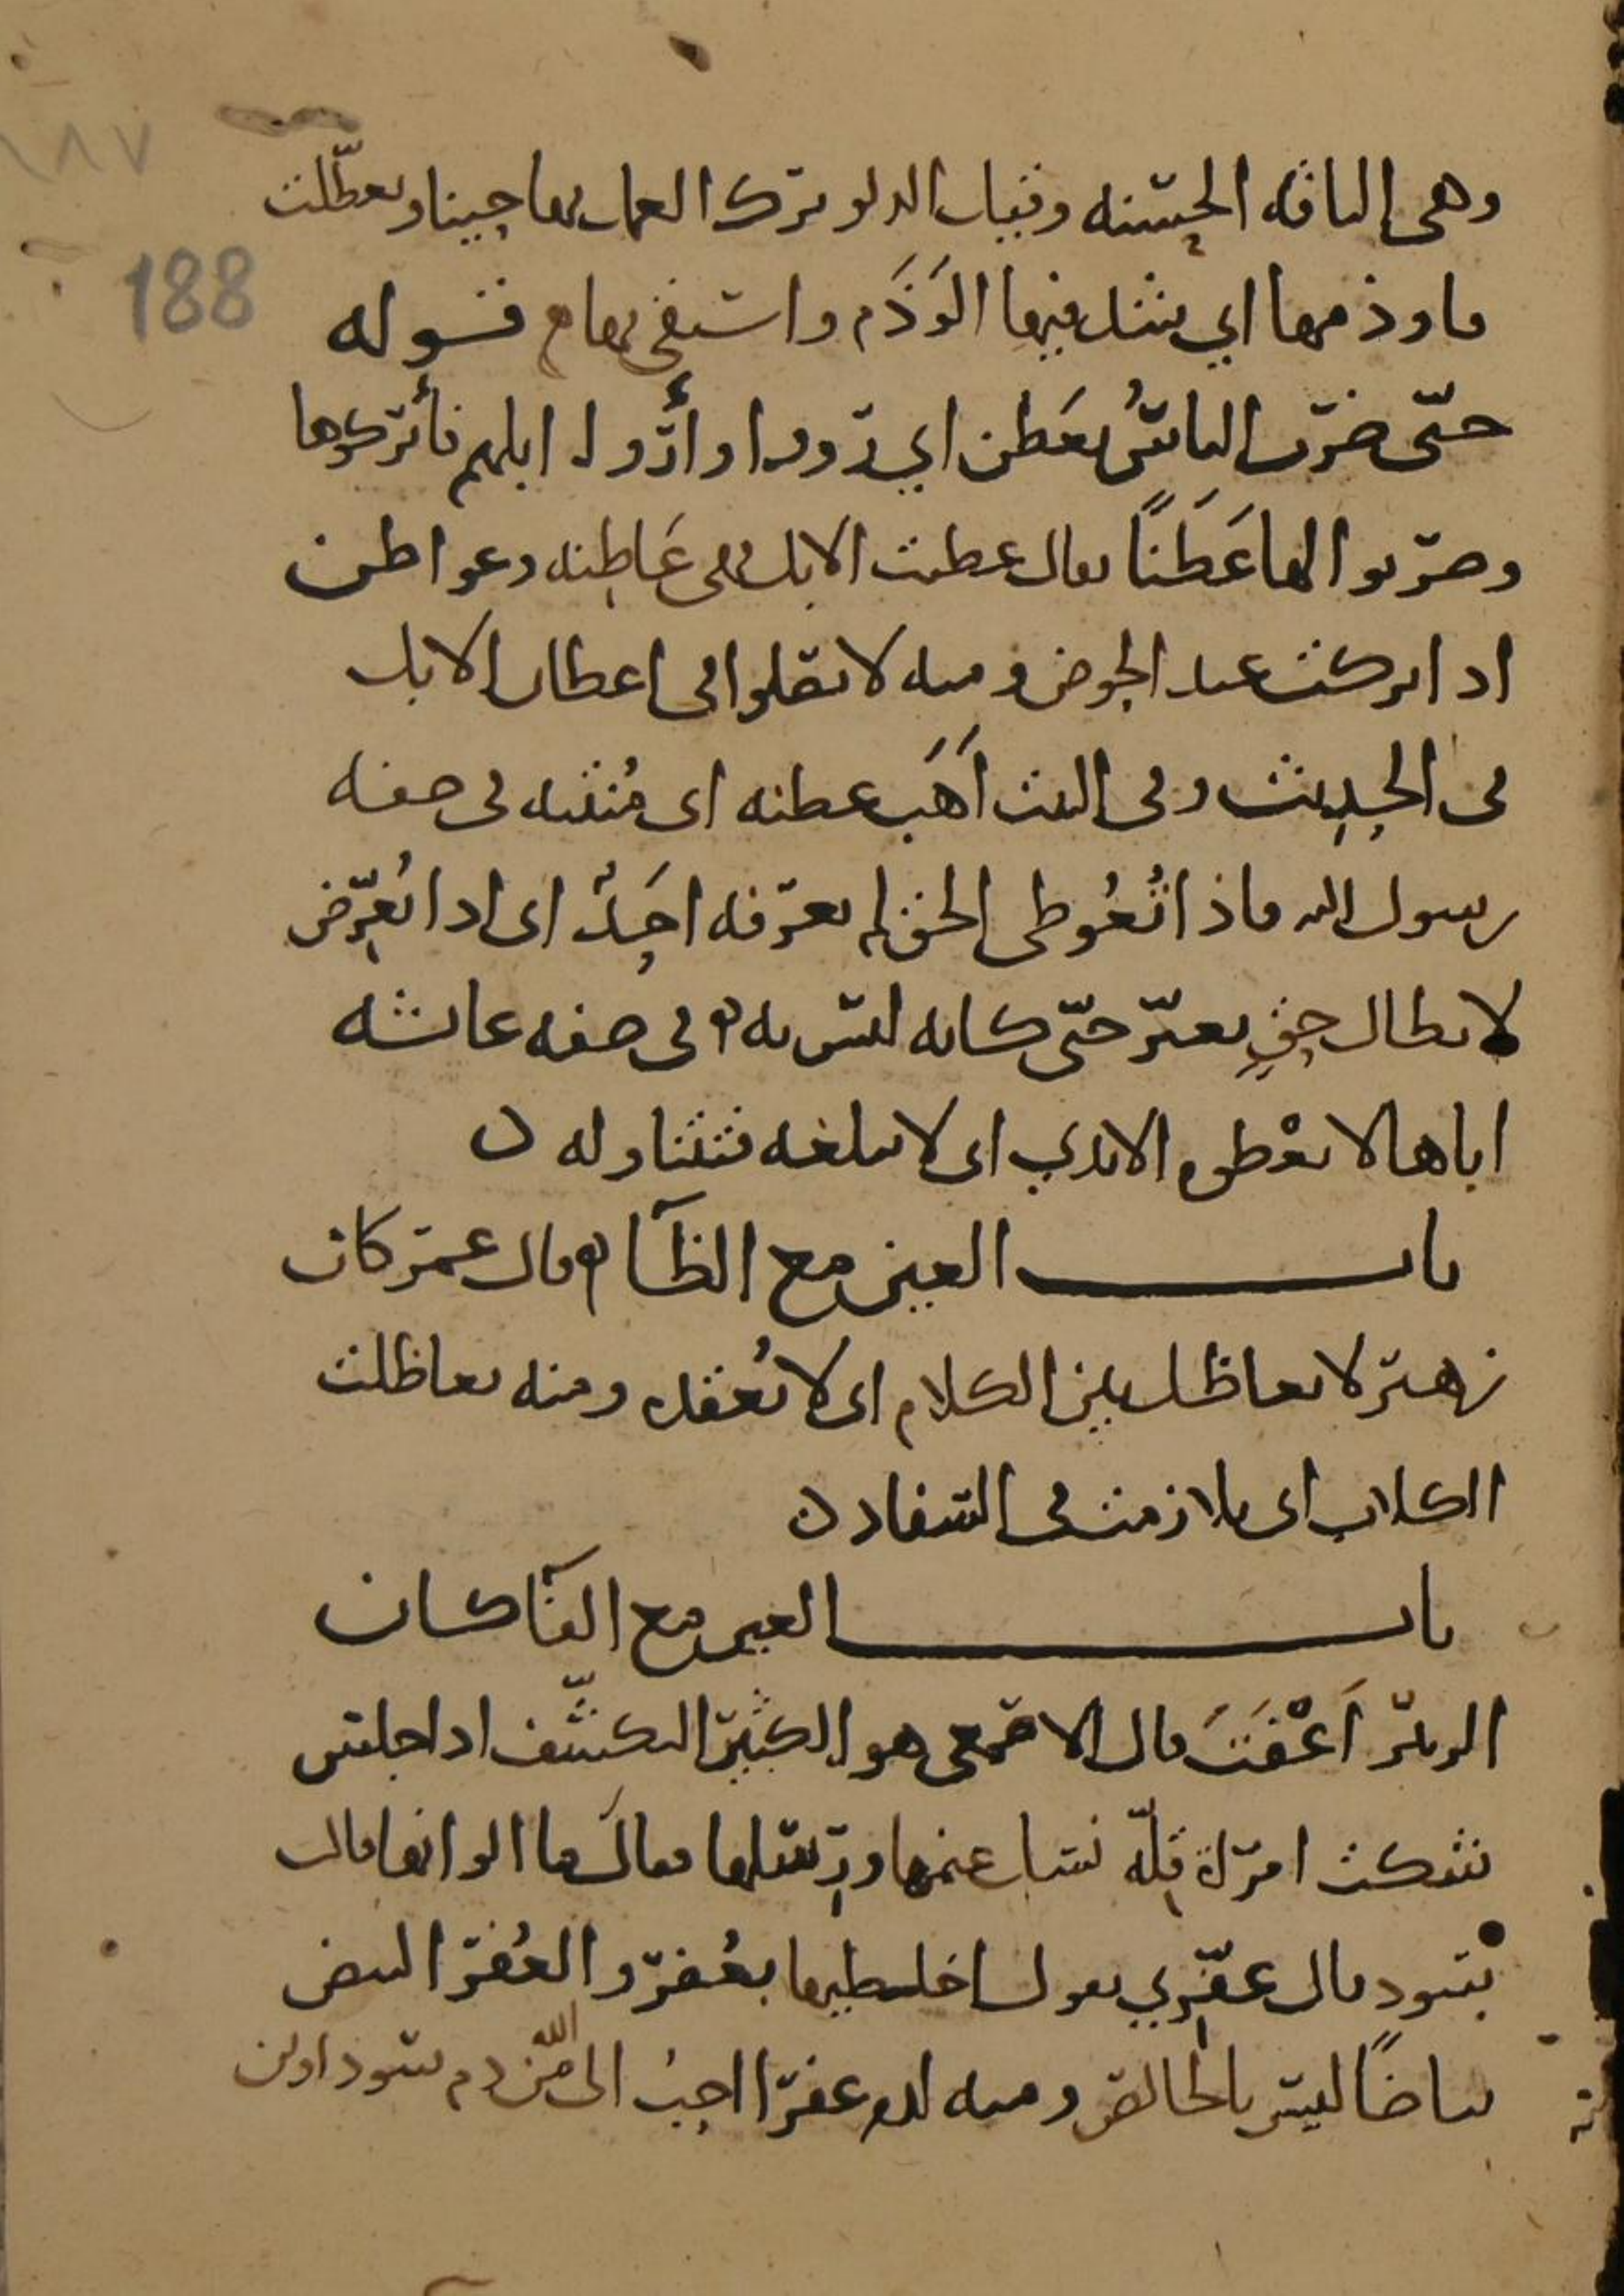 ١٨٧
188
وهي الناقه الحسنه وقيل الدلو ترك العمل بها حينا وتعطلت
ما وذمها اي شد فيها الوَذَم واستقى بها قوله
حتّى ضرب الناسُ بعَطن اي رووا وأرووا ابلهم فأبركوها
وضربوا لها عَطَنًا يقال عطنت الابل فهي عَاطِنه وعواطن
اذا بركت عند الحوض ومنه لا تصلوا في اعطان الابل
في الحديث وفي البيت اَهَب عطنه اي مُنتنه في صفه
رسول الله فاذا تُعُوطي الحق لم يعرفه احَدٌ اي اذا تُعرّض
لابطال حقٍ تغيّر حتّى كانه ليس به في صفه عائشه
اباها لا تعْطوه الايدي اي لا تبلغه فتتناوله
باب العين مع الظآ قال عمر كان
زهير لا يعاظل بين الكلام اي لا يُعقده ومنه تعاظلت
الكلاب اي تلازمت في السفاد
باب العين مع الفآ كان
الزبير اَعْفَثَ قال الاصمعي هو الكثير التكشّف اذا جلس
شكت امرأة قلّه نسل غنمها ورِسلها فقالَ ما الوانها قالت
سود قال عفّري يقول اخلطيها بعُفر والعُفر البيض
بياضًا ليس بالخالص ومنه لدم عفرا احبُ الى الله من دم سوداوين